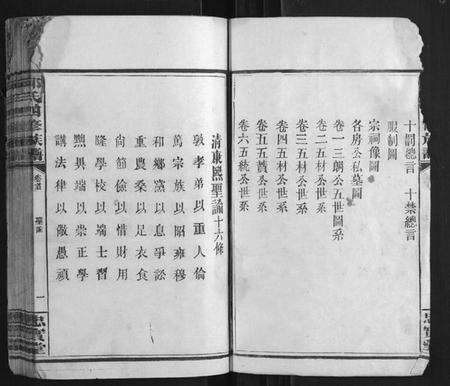 十罰總言 十禁總言
服制圖
宗祠像圖
各房公私墓圖
卷一三朝公五世圖系
卷二五材公世系
卷三五材公世系
卷四五材公世系
卷五五質公世系
卷六五統公世系
清康熙聖諭十六條
敦孝弟以重人倫
篤宗族以昭雍穆
和鄉黨以息爭訟
重農桑以足衣食
尚節儉以惜財用
隆學校以端士習
黜異端以崇正學
講法律以儆愚頑
四修族譜
卷首
一
思
堂